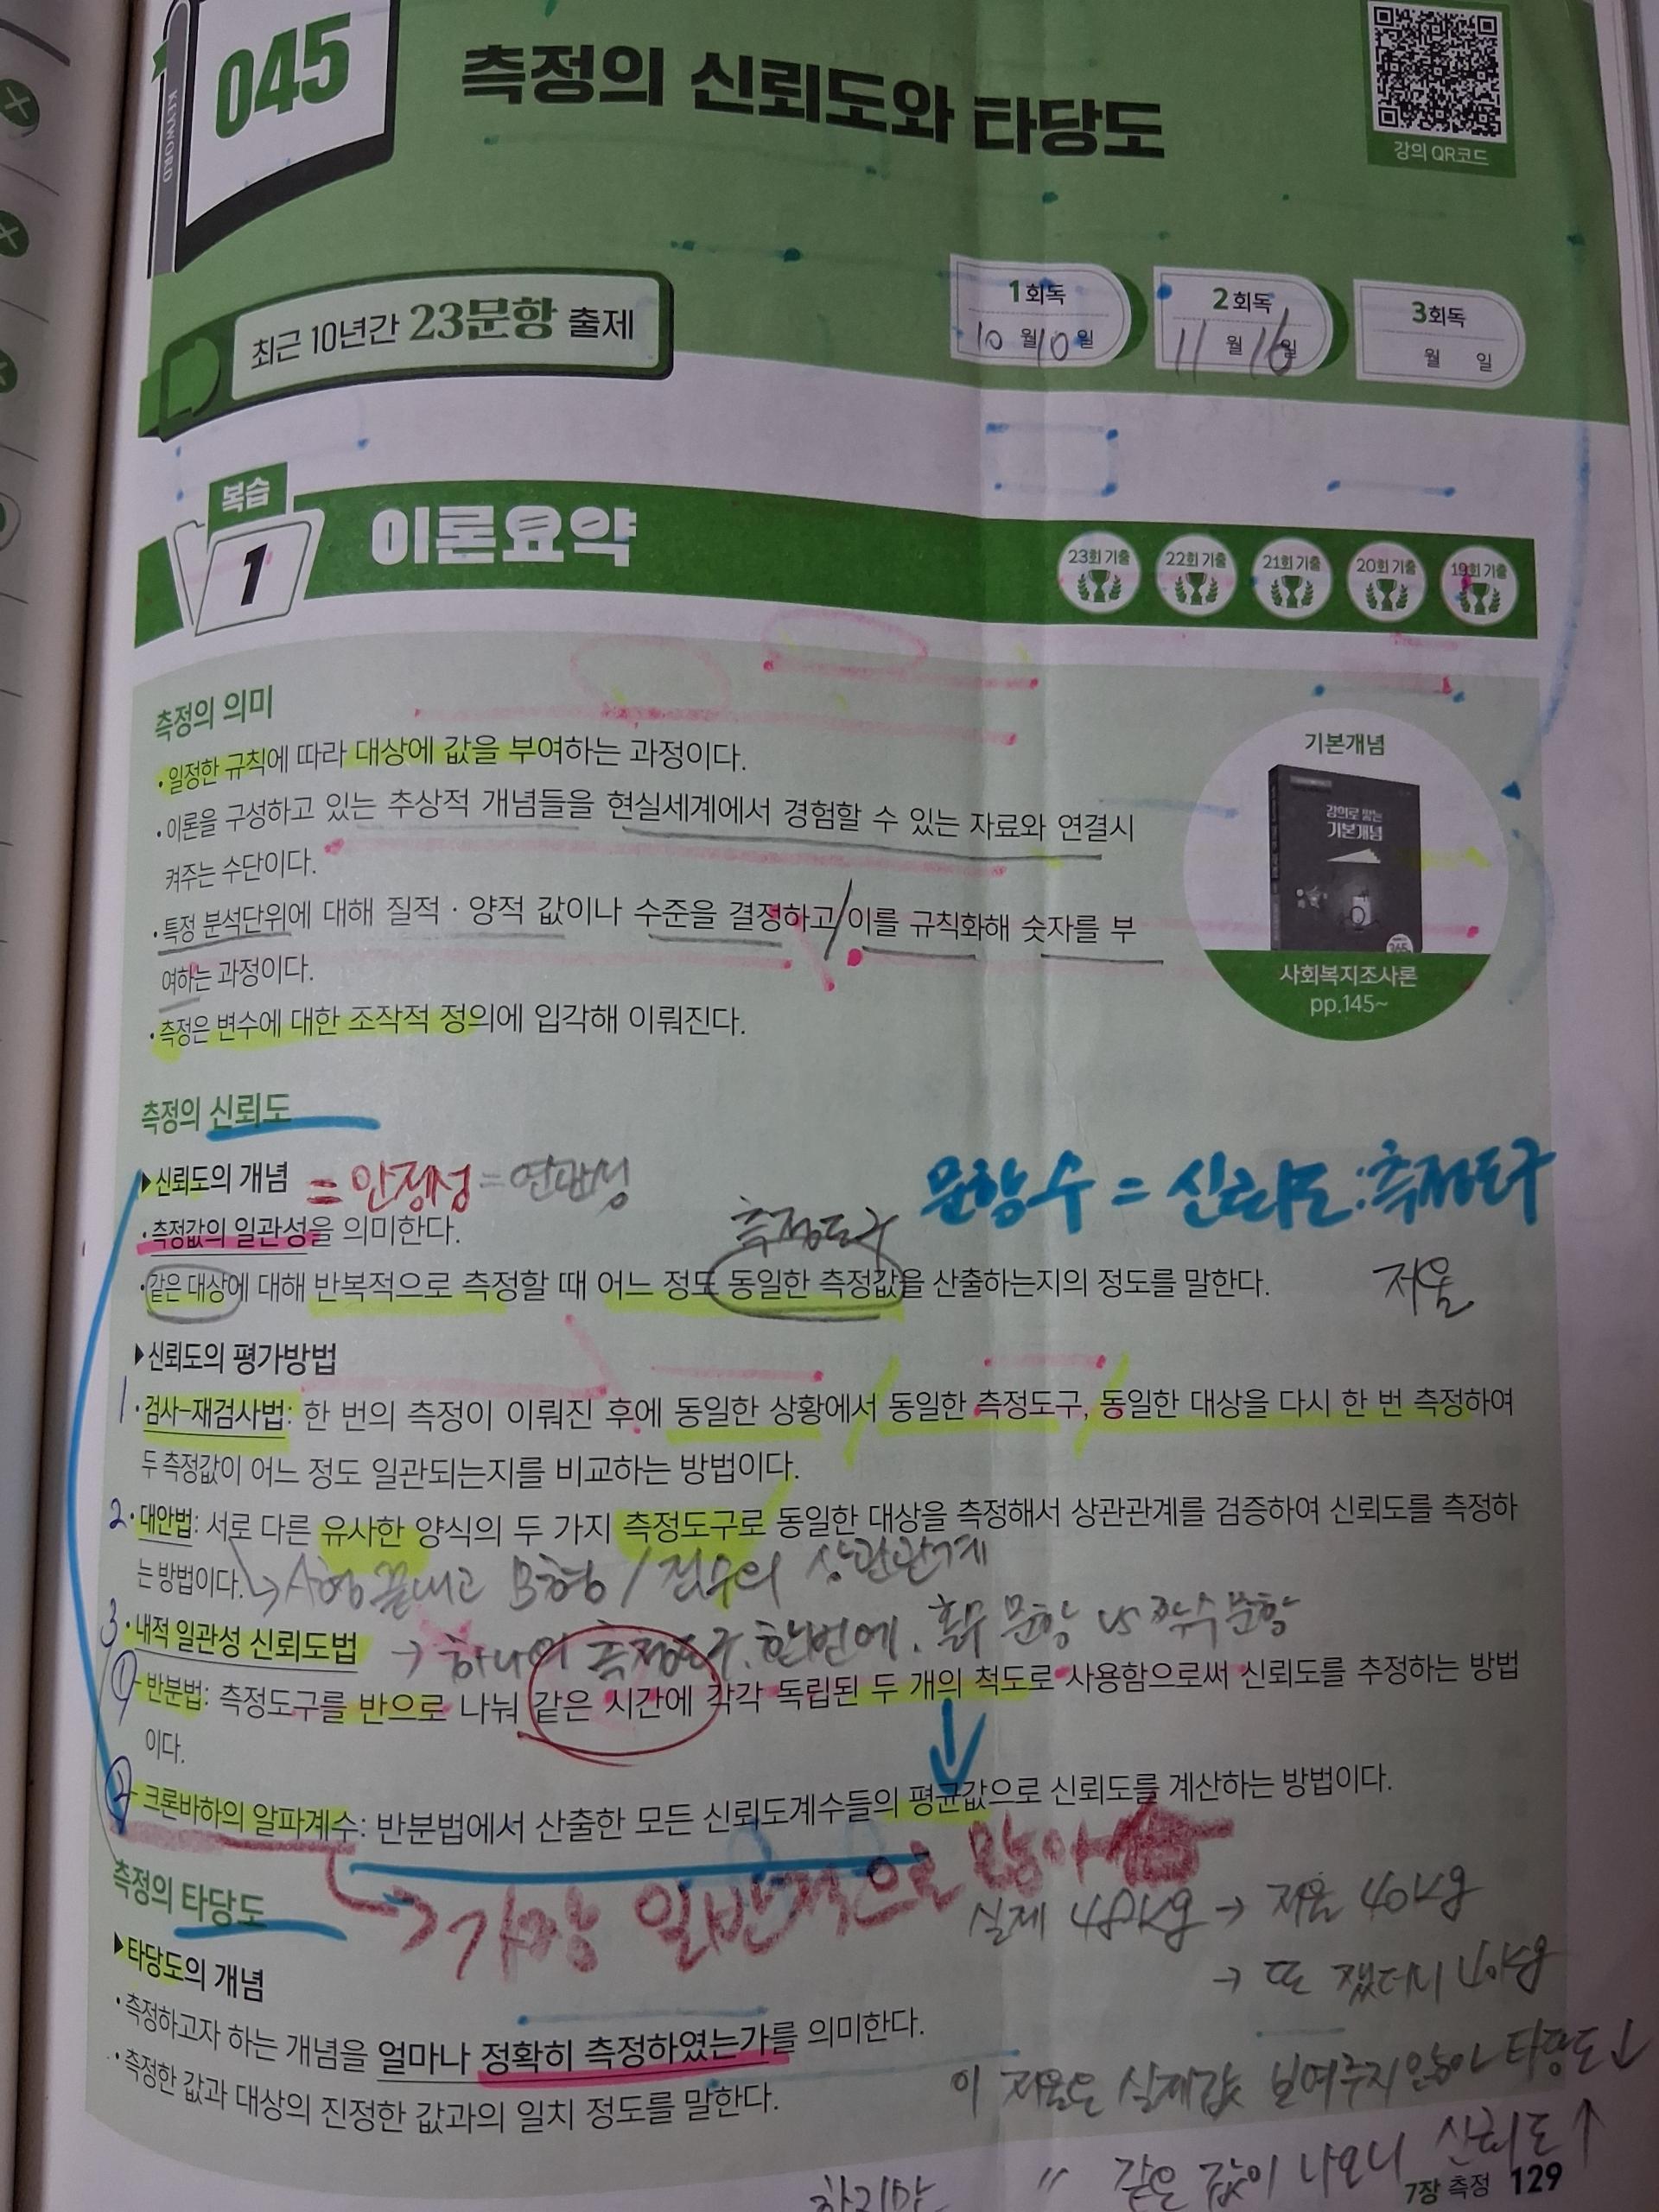 KEYWORD
045
측정의 신뢰도와 타당도
강의 QR코드
최근 10년간 23문항 출제
1회독
10월 10일
2회독
11월 16일
3회독
월 일
복습
1
이론요약
23회 기출
22회 기출
21회 기출
20회 기출
19회 기출
측정의 의미
·일정한 규칙에 따라 대상에 값을 부여하는 과정이다.
·이론을 구성하고 있는 추상적 개념들을 현실세계에서 경험할 수 있는 자료와 연결시
켜주는 수단이다.
·특정 분석단위에 대해 질적·양적 값이나 수준을 결정하고/이를 규칙화해 숫자를 부
여하는 과정이다.
·측정은 변수에 대한 조작적 정의에 입각해 이뤄진다.
기본개념
강의로 쌓는
기본개념
사회복지조사론
pp.145~
측정의 신뢰도
▶신뢰도의 개념 = 안정성 = 일관성
문항수 = 신뢰도:측정도구
·측정값의 일관성을 의미한다.
측정도구
·같은 대상에 대해 반복적으로 측정할 때 어느 정도 동일한 측정값을 산출하는지의 정도를 말한다.
저울
▶신뢰도의 평가방법
1·검사-재검사법: 한 번의 측정이 이뤄진 후에 동일한 상황에서 동일한 측정도구, 동일한 대상을 다시 한 번 측정하여
두 측정값이 어느 정도 일관되는지를 비교하는 방법이다.
2·대안법: 서로 다른 유사한 양식의 두 가지 측정도구로 동일한 대상을 측정해서 상관관계를 검증하여 신뢰도를 측정하
는 방법이다. → A형 끝내고 B형 / 점수의 상관관계
3·내적 일관성 신뢰도법 → 하나의 측정도구. 한번에. 홀수 문항 vs 짝수문항
① - 반분법: 측정도구를 반으로 나눠 같은 시간에 각각 독립된 두 개의 척도로 사용함으로써 신뢰도를 추정하는 방법
이다.
② - 크론바하의 알파계수: 반분법에서 산출한 모든 신뢰도계수들의 평균값으로 신뢰도를 계산하는 방법이다.
→ 가장 일반적으로 많이
측정의 타당도
실제 48kg → 저울 40kg
▶타당도의 개념
→ 또 쟀더니 40kg
·측정하고자 하는 개념을 얼마나 정확히 측정하였는가를 의미한다.
이 저울은 실제값 보여주지 않아 타당도↓
·측정한 값과 대상의 진정한 값과의 일치 정도를 말한다.
하지만 〃 같은 값이 나오니 신뢰도↑
7장 측정 129